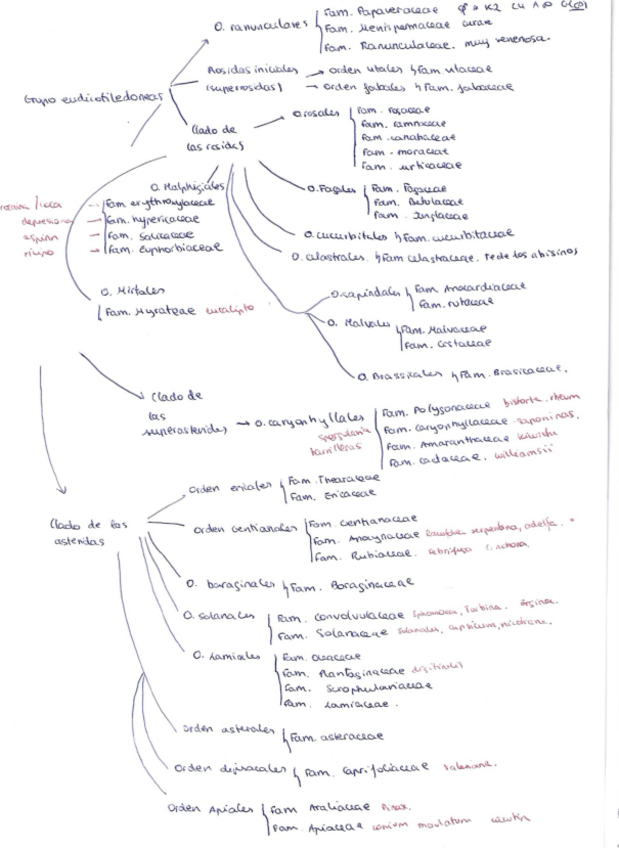 O. ranunculares
Fam. Papaveraceae
Fam. Menispermaceae curare
Fam. Ranunculaceae. muy venenosa.
Grupo eudicotiledoneas
Rosidas iniciales
(superosidas)
orden vitales Fam vitaceae
orden fabales Fam. fabaceae
Clado de
las rosidas
O. rosales
Fam. rosaceae
Fam. ramnaceae
Fam. cannabaceae
Fam. moraceae
Fam. urticaceae
O. Malphigiales
Fam. erythroxylaceae
Fam. hypericaceae
Fam. Salicaceae
Fam. Euphorbiaceae
/coca
depresiones
aspirin
ricino
O. Fagales
Fam. Fagaceae
Fam. Betulaceae
Fam. Junglaceae
O. cucurbitales Fam. cucurbitaceae
O. celastrales Fam celastraceae. te de los abisinos
O. Mirtales
Fam. Myrataceae eucalipto
O. sapindales
Fam Anacardiaceae
Fam. rutaceae
O. Malvales
Fam. Malvaceae
Fam. Cistaceae
O. Brassicales Fam. Brasicaceae.
Clado de
las
superasterides
O. caryophyllales
Fam. Polygonaceae bistorta. rheum
Fam. caryophyllaceae saponinas,
Fam. Amaranthaceae
Fam. cactaceae. williamsii
barrilleras
Orden ericales
Fam. Thearaceae
Fam. Ericaceae
Clado de las
asteridas
orden Gentianales
Fam. Gentianaceae
Fam. Apocynaceae serpentina, adelfa.
Fam. Rubiaceae. febrifuga
O. boraginales Fam. Boraginaceae
O. solanales
Fam. convolvulaceae Turbina.
Fam. Solanaceae solanales, capsicum, nicotiana.
O. Lamiales
Fam. Oleaceae
Fam. Plantaginaceae digitales
Fam. Scrophulariaceae
Fam. Lamiaceae.
orden asterales Fam. asteraceae
orden dipsacales Fam. Caprifoliaceae valeriana.
Orden Apiales
Fam Araliaceae Panax.
Fam. Apiaceae conium maculatum